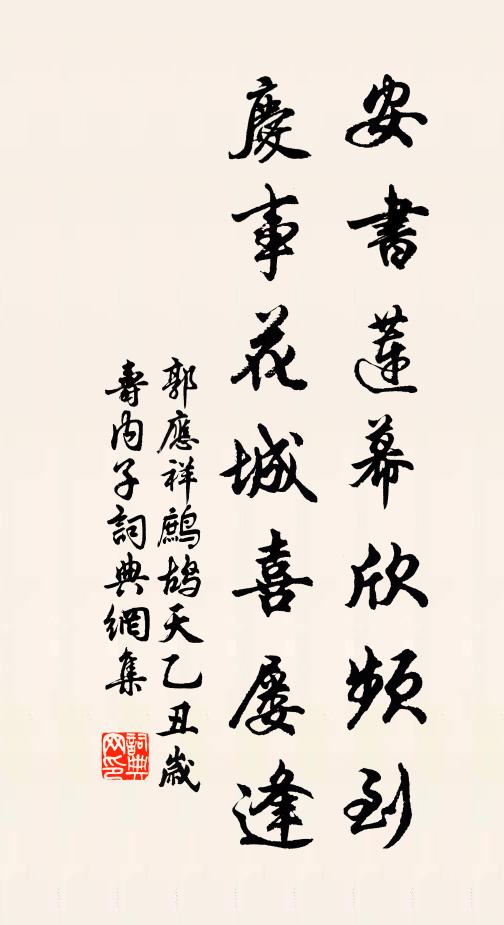 安書蓮幕欣頻到
慶事花城喜屢逢
郭應祥鷓鴣天乙丑歲
壽内子詞典網集
詞典網印